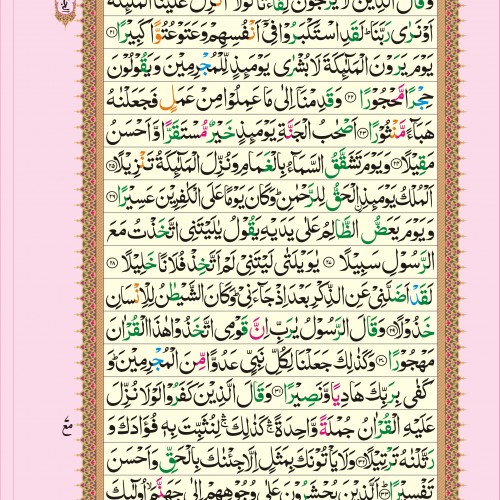 وَقَالَ الَّذِيْنَ لَا يَرْجُوْنَ لِقَآءَنَا لَوْلَاۤ اُنْزِلَ عَلَيْنَا الْمَلٰٓئِكَةُ
اَوْ نَرٰى رَبَّنَا ؕ لَقَدِ اسْتَكْبَرُوْا فِىْۤ اَنْفُسِهِمْ وَعَتَوْ عُتُوًّا كَبِيْرًا ﴿۲۱﴾
يَوْمَ يَرَوْنَ الْمَلٰٓئِكَةَ لَا بُشْرٰى يَوْمَئِذٍ لِّلْمُجْرِمِيْنَ وَيَقُوْلُوْنَ
حِجْرًا مَّحْجُوْرًا ﴿۲۲﴾ وَقَدِمْنَاۤ اِلٰى مَا عَمِلُوْا مِنْ عَمَلٍ فَجَعَلْنٰهُ
هَبَآءً مَّنْثُوْرًا ﴿۲۳﴾ اَصْحٰبُ الْجَنَّةِ يَوْمَئِذٍ خَيْرٌ مُّسْتَقَرًّا وَّاَحْسَنُ
مَقِيْلًا ﴿۲۴﴾ وَيَوْمَ تَشَقَّقُ السَّمَآءُ بِالْغَمَامِ وَنُزِّلَ الْمَلٰٓئِكَةُ تَنْزِيْلًا ﴿۲۵﴾
اَلْمُلْكُ يَوْمَئِذِ اۨلْحَقُّ لِلرَّحْمٰنِ ؕ وَكَانَ يَوْمًا عَلَى الْكٰفِرِيْنَ عَسِيْرًا ﴿۲۶﴾
وَيَوْمَ يَعَضُّ الظَّالِمُ عَلٰى يَدَيْهِ يَقُوْلُ يٰلَيْتَنِى اتَّخَذْتُ مَعَ
الرَّسُوْلِ سَبِيْلًا ﴿۲۷﴾ يٰوَيْلَتٰى لَيْتَنِىْ لَمْ اَتَّخِذْ فُلَانًا خَلِيْلًا ﴿۲۸﴾
لَقَدْ اَضَلَّنِىْ عَنِ الذِّكْرِ بَعْدَ اِذْ جَآءَنِىْ ؕ وَكَانَ الشَّيْطٰنُ لِلْاِنْسَانِ
خَذُوْلًا ﴿۲۹﴾ وَقَالَ الرَّسُوْلُ يٰرَبِّ اِنَّ قَوْمِى اتَّخَذُوْا هٰذَا الْقُرْاٰنَ
مَهْجُوْرًا ﴿۳۰﴾ وَكَذٰلِكَ جَعَلْنَا لِكُلِّ نَبِىٍّ عَدُوًّا مِّنَ الْمُجْرِمِيْنَ ؕ وَ
كَفٰى بِرَبِّكَ هَادِيًا وَّنَصِيْرًا ﴿۳۱﴾ وَقَالَ الَّذِيْنَ كَفَرُوْا لَوْلَا نُزِّلَ
عَلَيْهِ الْقُرْاٰنُ جُمْلَةً وَّاحِدَةً ۛۚ كَذٰلِكَ ۛۚ لِنُثَبِّتَ بِهٖ فُؤَادَكَ وَ
مع
رَتَّلْنٰهُ تَرْتِيْلًا ﴿۳۲﴾ وَلَا يَاْتُوْنَكَ بِمَثَلٍ اِلَّا جِئْنٰكَ بِالْحَقِّ وَاَحْسَنَ
تَفْسِيْرًا ﴿۳۳﴾ اَلَّذِيْنَ يُحْشَرُوْنَ عَلٰى وُجُوْهِهِمْ اِلٰى جَهَنَّمَ ۙ اُولٰٓئِكَ